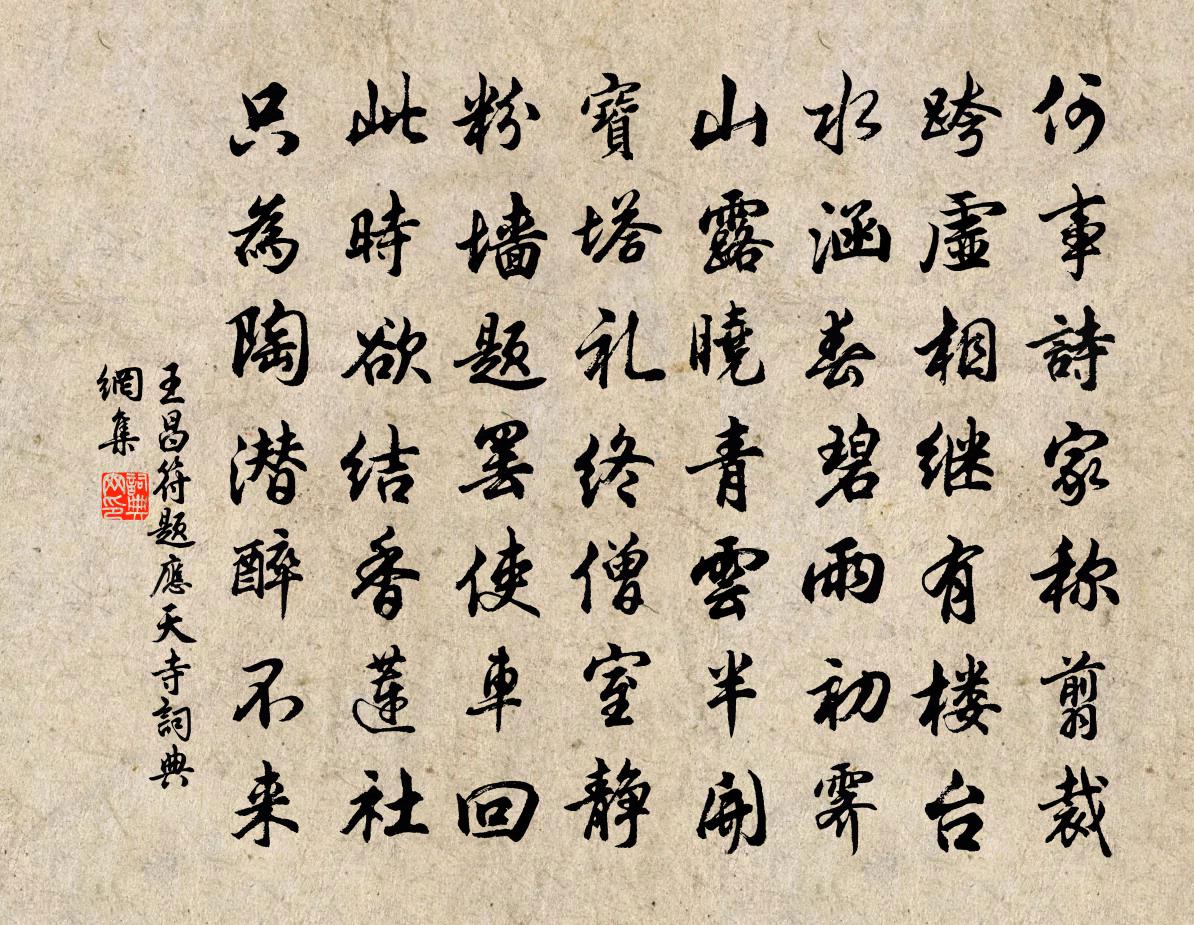 何事詩家称剪裁
跨虛相继有楼台
水涵春碧雨初霁
山露曉青雲半開
寶塔礼终僧室静
粉墙题罢使車回
此時欲结香莲社
只為陶潜醉不来
王昌符题應天寺詞典
網集
詞典
网印